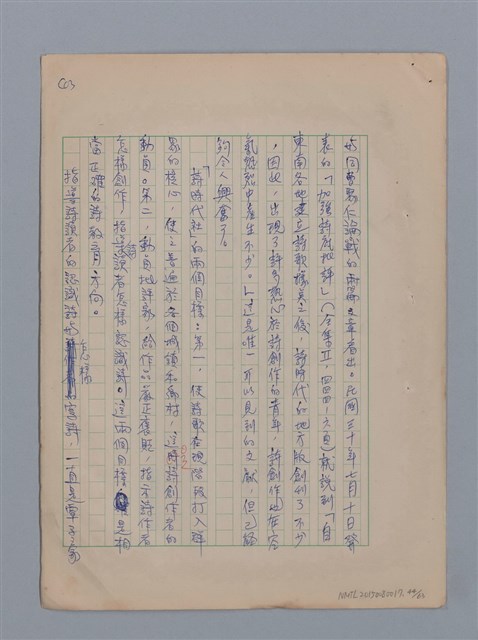 C03
與曹聚仁論戰的兩篇文章看出。民國三十年七月十日發
表的「加強詩底批評」(全集Ⅱ,四四四,六頁)就說到「自
東南各地建立詩歌據點之後,詩時代的地方版創刊了不少
,因此,出現了許多熱心於詩創作的青年,詩創作也在突
擊中產生不少。」這是唯一可以見到的文獻,但已經
夠令人興奮了。
「詩時代社」的兩個目標:第一,使詩歌在現階段打入群
眾的核心,使之普遍於各個城鎮和鄉村,這時詩創作者的
動員。第二,動員地評詩,給作品嚴正褒貶,指示詩作者
怎樣創作,指導讀者怎樣認識詩。這兩個目標是相
當正確的詩教育方向。
指導詩讀者的認識詩與怎樣寫詩,一直是覃子豪
NMTL20150280017. 44/62